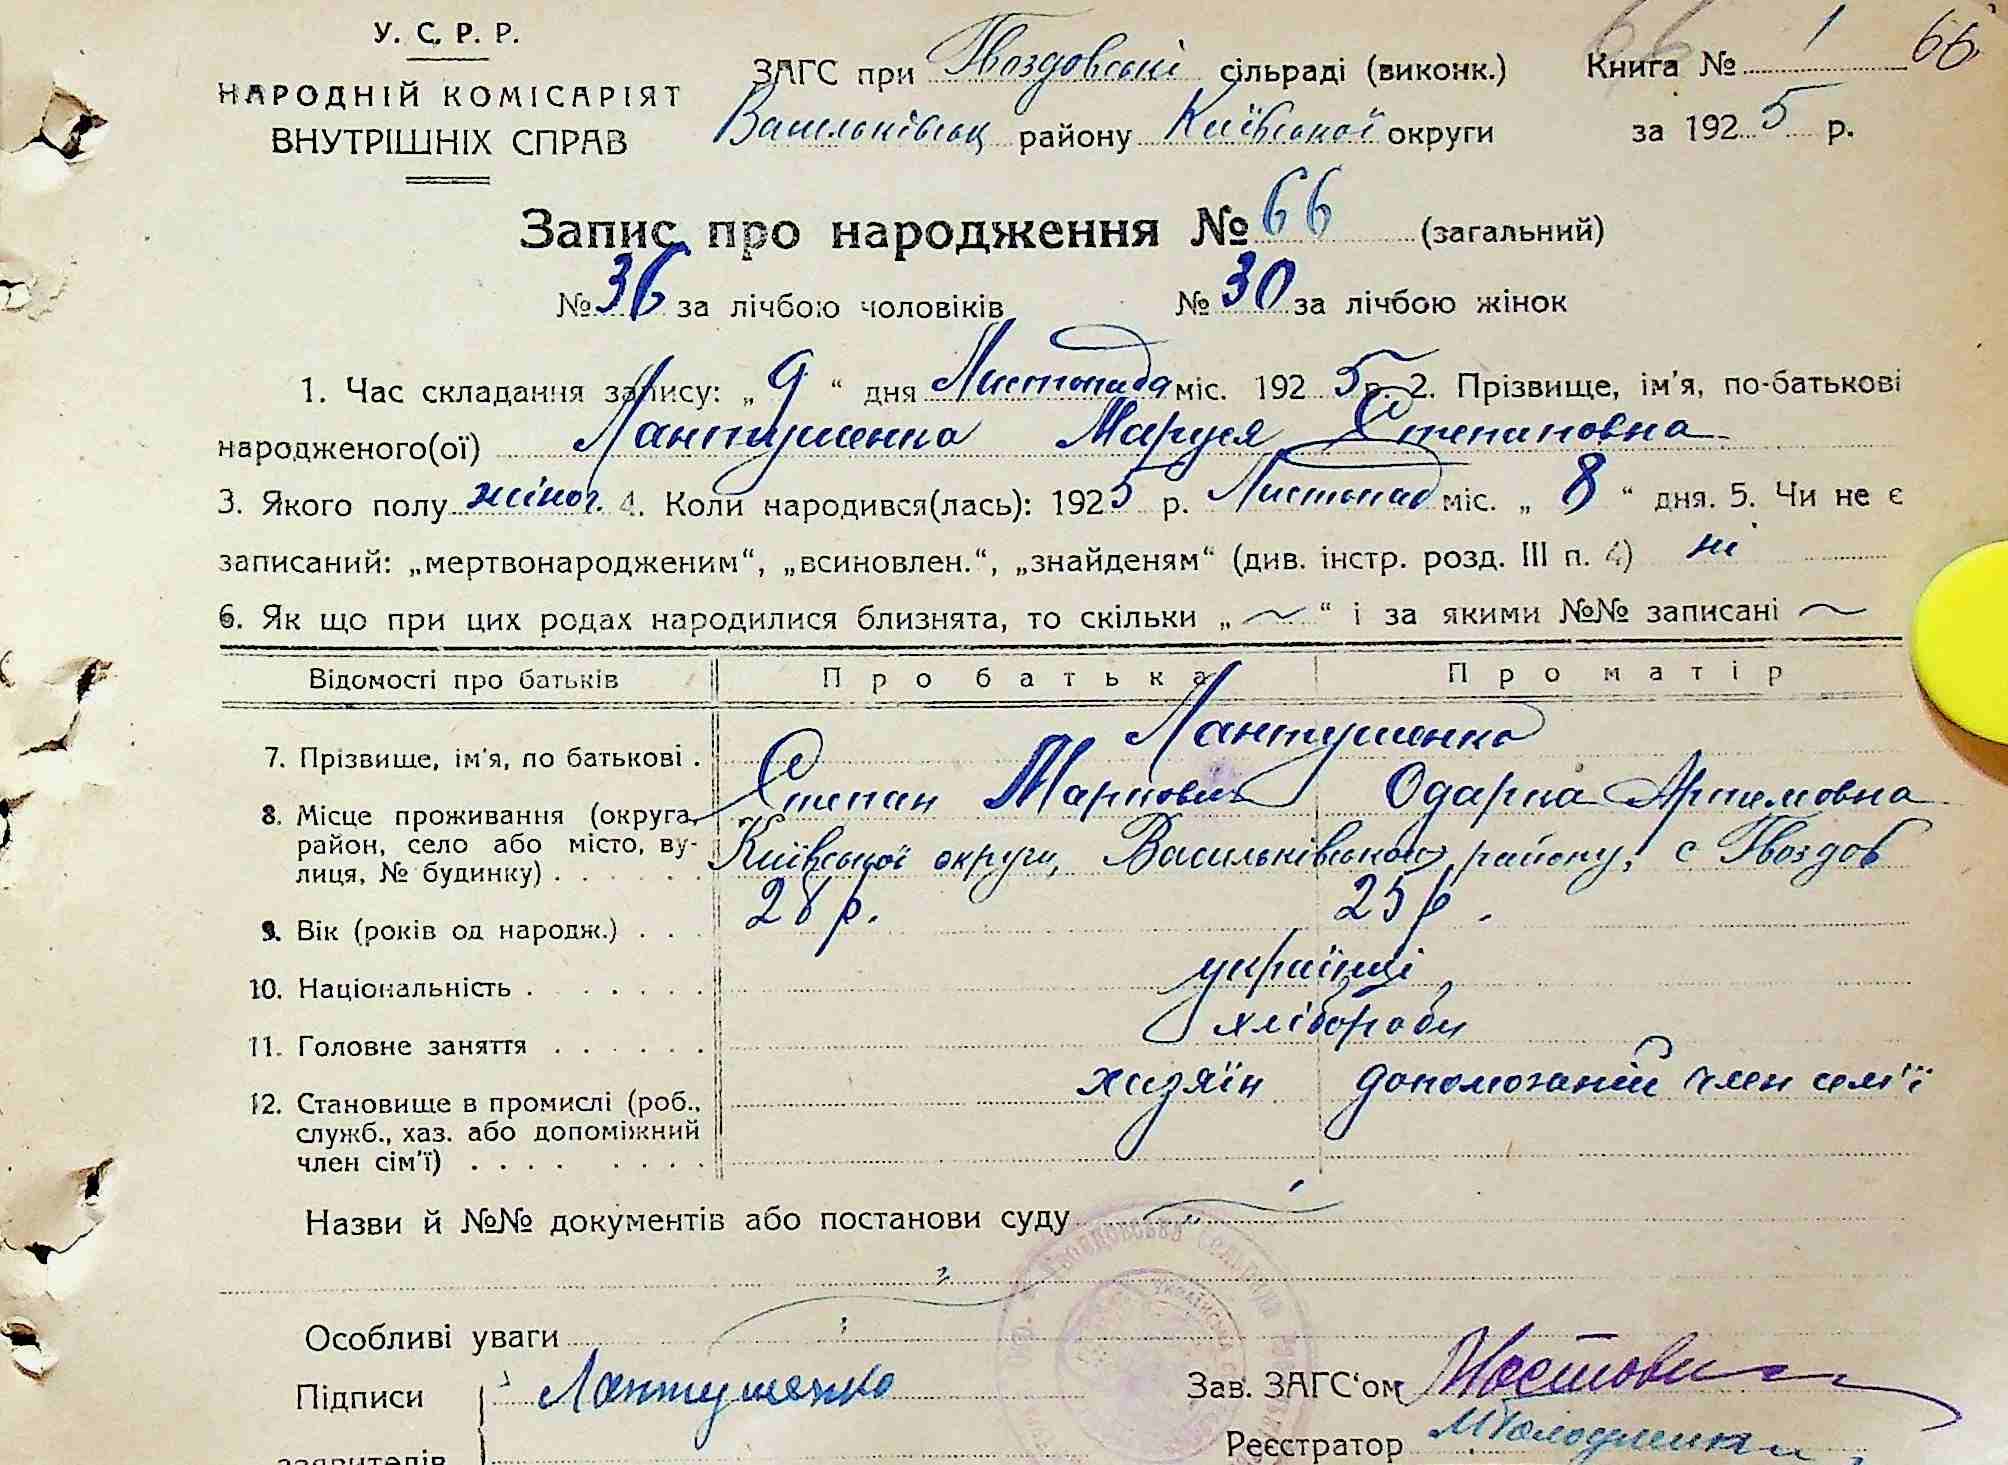 У. С. Р. Р.
НАРОДНІЙ КОМІСАРІЯТ
ВНУТРІШНІХ СПРАВ
ЗАГС при Гвоздовські сільраді (виконк.)
Васильківськ району Київської округи
Книга № 1 66
за 1925 р.
Запис про народження № 66 (загальний)
№ 36 за лічбою чоловіків № 30 за лічбою жінок
1. Час складання запису: „ 9 “ дня Листопада міс. 1925 р. 2. Прізвище, ім'я, по-батькові
народженого(ої) Лантушенко Маруся Степановна
3. Якого полу жіноч. 4. Коли народився(лась): 1925 р. Листопад міс. „ 8 “ дня. 5. Чи не є
записаний: „мертвонародженим“, „всиновлен.“, „знайденям“ (див. інстр. розд. III п. 4) ні
6. Як що при цих родах народилися близнята, то скільки „ ~ “ і за якими №№ записані ~
Відомості про батьків Про батька Про матір
Лантушенко
7. Прізвище, ім'я, по батькові . Степан Маркович Одарка Артемовна
8. Місце проживання (округа,
район, село або місто, ву-
лиця, № будинку) . . . . . Київської округи, Васильківського району, с Гвоздов
9. Вік (років од народж.) . . . 28 р. 25 р.
10. Національність . . . . . . українці
11. Головне заняття . . . . . . хлібороби
12. Становище в промислі (роб.,
служб., хаз. або допоміжний
член сім'ї) . . . . . . . . хазяїн допомогаючий член сем'ї
Назви й №№ документів або постанови суду
Особливі уваги
Підписи Лантушенко
заявителів
Зав. ЗАГС'ом
Реєстратор